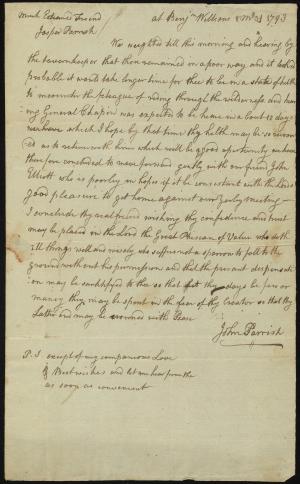 much Esteemed Friend
Jasper Parrish
at Benj.n Williams 8 mo 21 1793
We waighted till this morning and hearing by
the tavernkeeper that thee remained in a poor way and it looked
probable it would take longer time for thee to be in a state of health
to encounter the fateague of riding through the wilderness and hear
ing General Chapin was expected to be home in about 12 days
which I hope by that time thy helth may be so recovered
as to return with him which will be a good opertunity we have
therefore concluded to move forward gently with our friend John
Elliott who is poorly in hopes if it be consistent with the Lord's
good pleasure to get home against our Yearly meeting —
I conclude thy real friend wishing thy confidence and trust
may be placed on the Lord the Great Phesician of Value who doth
ill things well and wisely who suffers not a sparrow to fall to the
ground without his permission and that the present dispensation
may be sanctified to thee so that let thy days be few or
many they may be spent in the fear of thy Creator so that thy
Latter end may be crowned with Peace
John Parrish
P.S except of my companions Love
& Best wishes and let me hear from thee
as soon as convenient